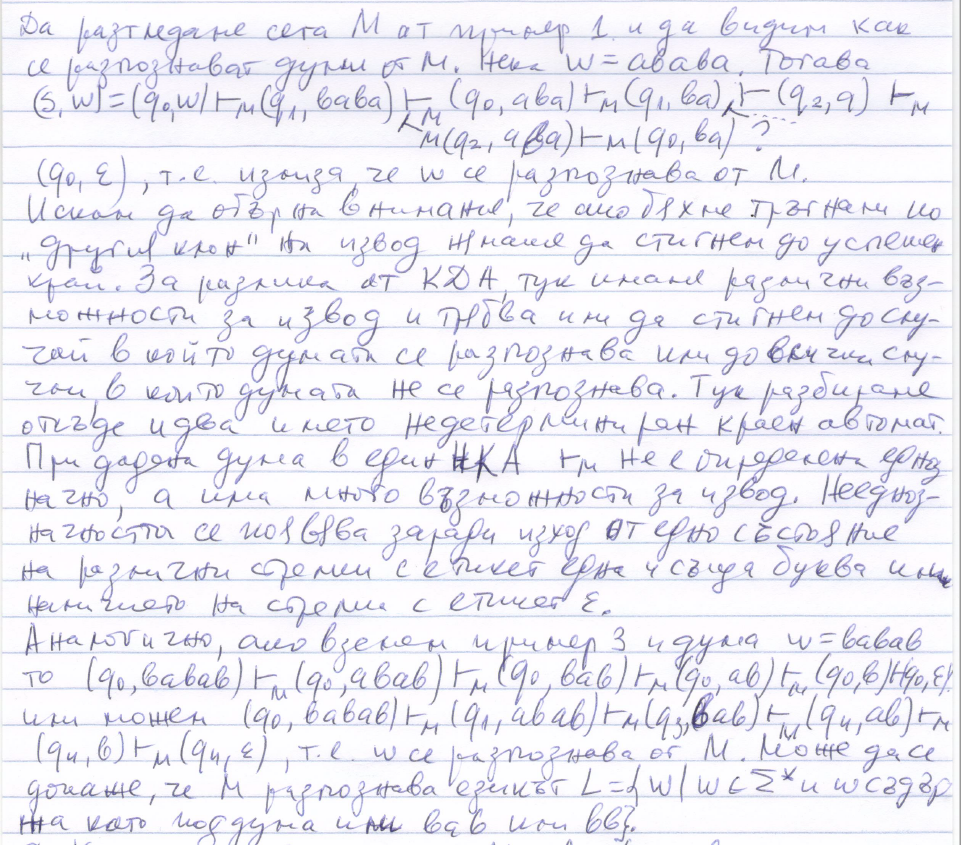 Да разгледаме сега M от пример 1 и да видим как
се разпознават думи от M. Нека w = авава. Тогава
(s, w) = (q₀, w) ⊢ₘ (q₁, вава) ⊢ₘ (q₀, ава) ⊢ₘ (q₁, ва) ⊢ (q₂, а) ⊢ₘ
⊢ₘ (q₂, ава) ⊢ₘ (q₀, ва) ?
(q₀, ε), т.е. излиза, че w се разпознава от M.
Искам да обърна внимание, че ако бяхме тръгнали по
„другия клон" на извод нямаше да стигнем до успешен
край. За разлика от КДА, тук имаме различни въз-
можности за извод и трябва или да стигнем до слу-
чай в който думата се разпознава или до всички слу-
чаи, в които думата не се разпознава. Тук разбираме
откъде идва името недетерминиран краен автомат.
При дадена дума в един НКА ⊢ₘ не е определена едноз
начно, а има много възможности за извод. Нееднoз-
начността се появява заради изход от едно състояние
на различни стрелки с етикет една и съща буква или
наличието на стрелки с етикет ε.
Аналогично, ако вземем пример 3 и дума w = вавав
то (q₀, вавав) ⊢ₘ (q₀, авав) ⊢ₘ (q₀, вав) ⊢ₘ (q₀, ав) ⊢ₘ (q₀, в) ⊢ (q₀, ε).
или можем (q₀, вавав) ⊢ₘ (q₁, авав) ⊢ₘ (q₃, вав) ⊢ₘ (q₄, ав) ⊢ₘ
(q₄, в) ⊢ₘ (q₄, ε), т.е. w се разпознава от M. Може да се
докаже, че M разпознава езикът L = { w | w ∈ Σ* и w съдър
жа като поддума или вав или вв}.